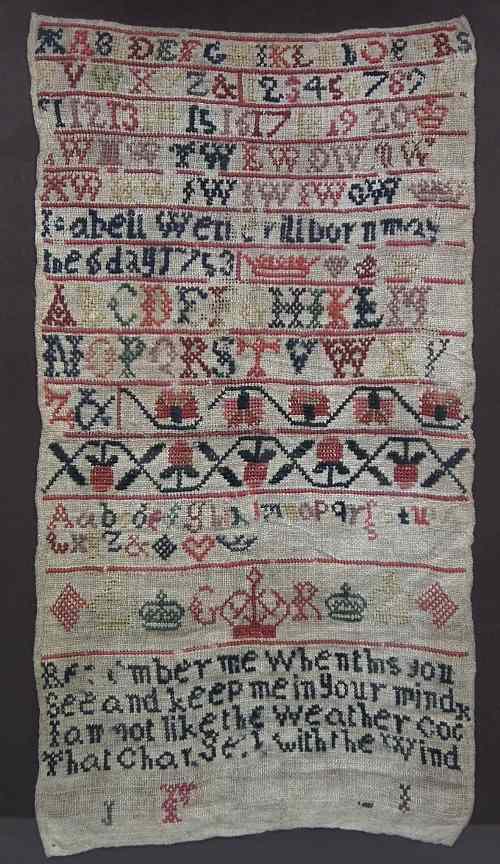 A B D E F G I K L O P R S
V W X Z & 1 2 3 4 5 6 7 8 9
11 12 13 15 16 17 19 20
W W EW DW
W W W
Isabell born may
the 6 day 1753
A C D F H I K L M
N O P Q R S T V W X Y
Z &
A a b c d e f g h k l m n o p q r s t u
w x y Z &
G R
Remember me when this you
See and keep me in your mind
I am not like the weather Coc
That Change with the Wind
F I